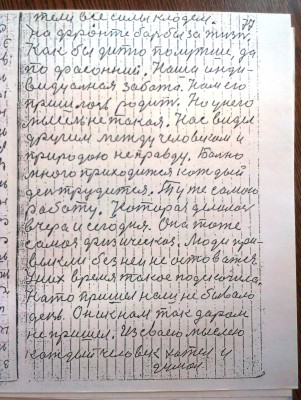 тели все силы кладем. 79
на фронте борьбы за жизнь.
Как бы дитю получше, да
по фасонний. Наша инди-
видуалная забота. Нам его
пришлось родит. Но у него
мысль не такая. Нас видел
другим между человеком и
природою неправду. Болно
много приходится каждый
ден трудится. Ту же самою
работу. Которая делалас
вчера и сегодня. Она тоже
самая физическая. Люди при-
выкли без неи не остоватся.
У них время такое подскочило.
Кто пришел нам не бывало
ден. Он к нам так даром
не пришел. Из своею мыслею
каждый человек хотел и